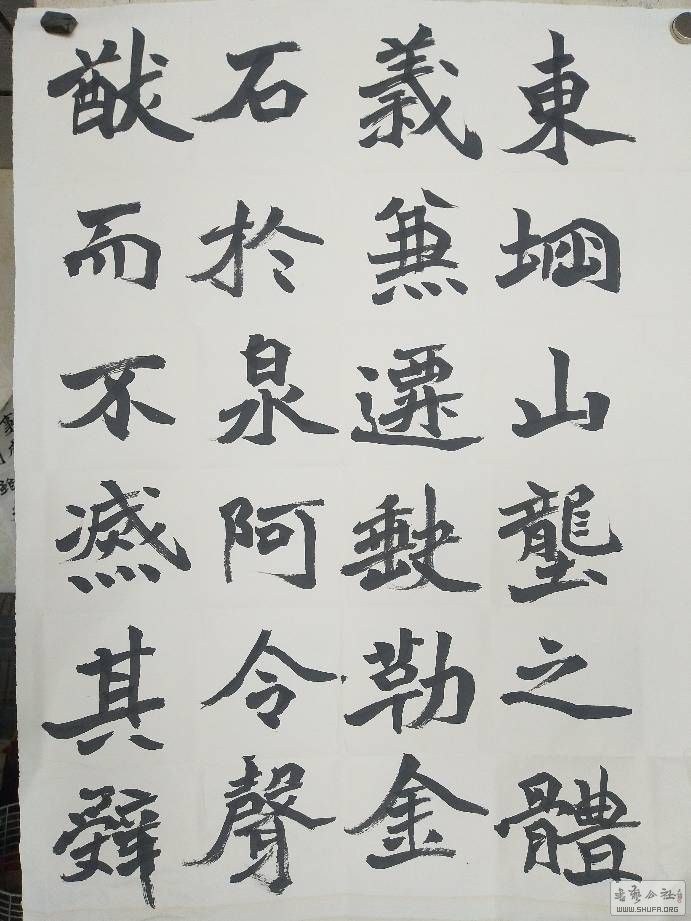 東堈山壟之體
義兼遷缺勒金
石於泉阿令聲
猷而不滅其辭
書藝公社
WWW.SHUFA.ORG